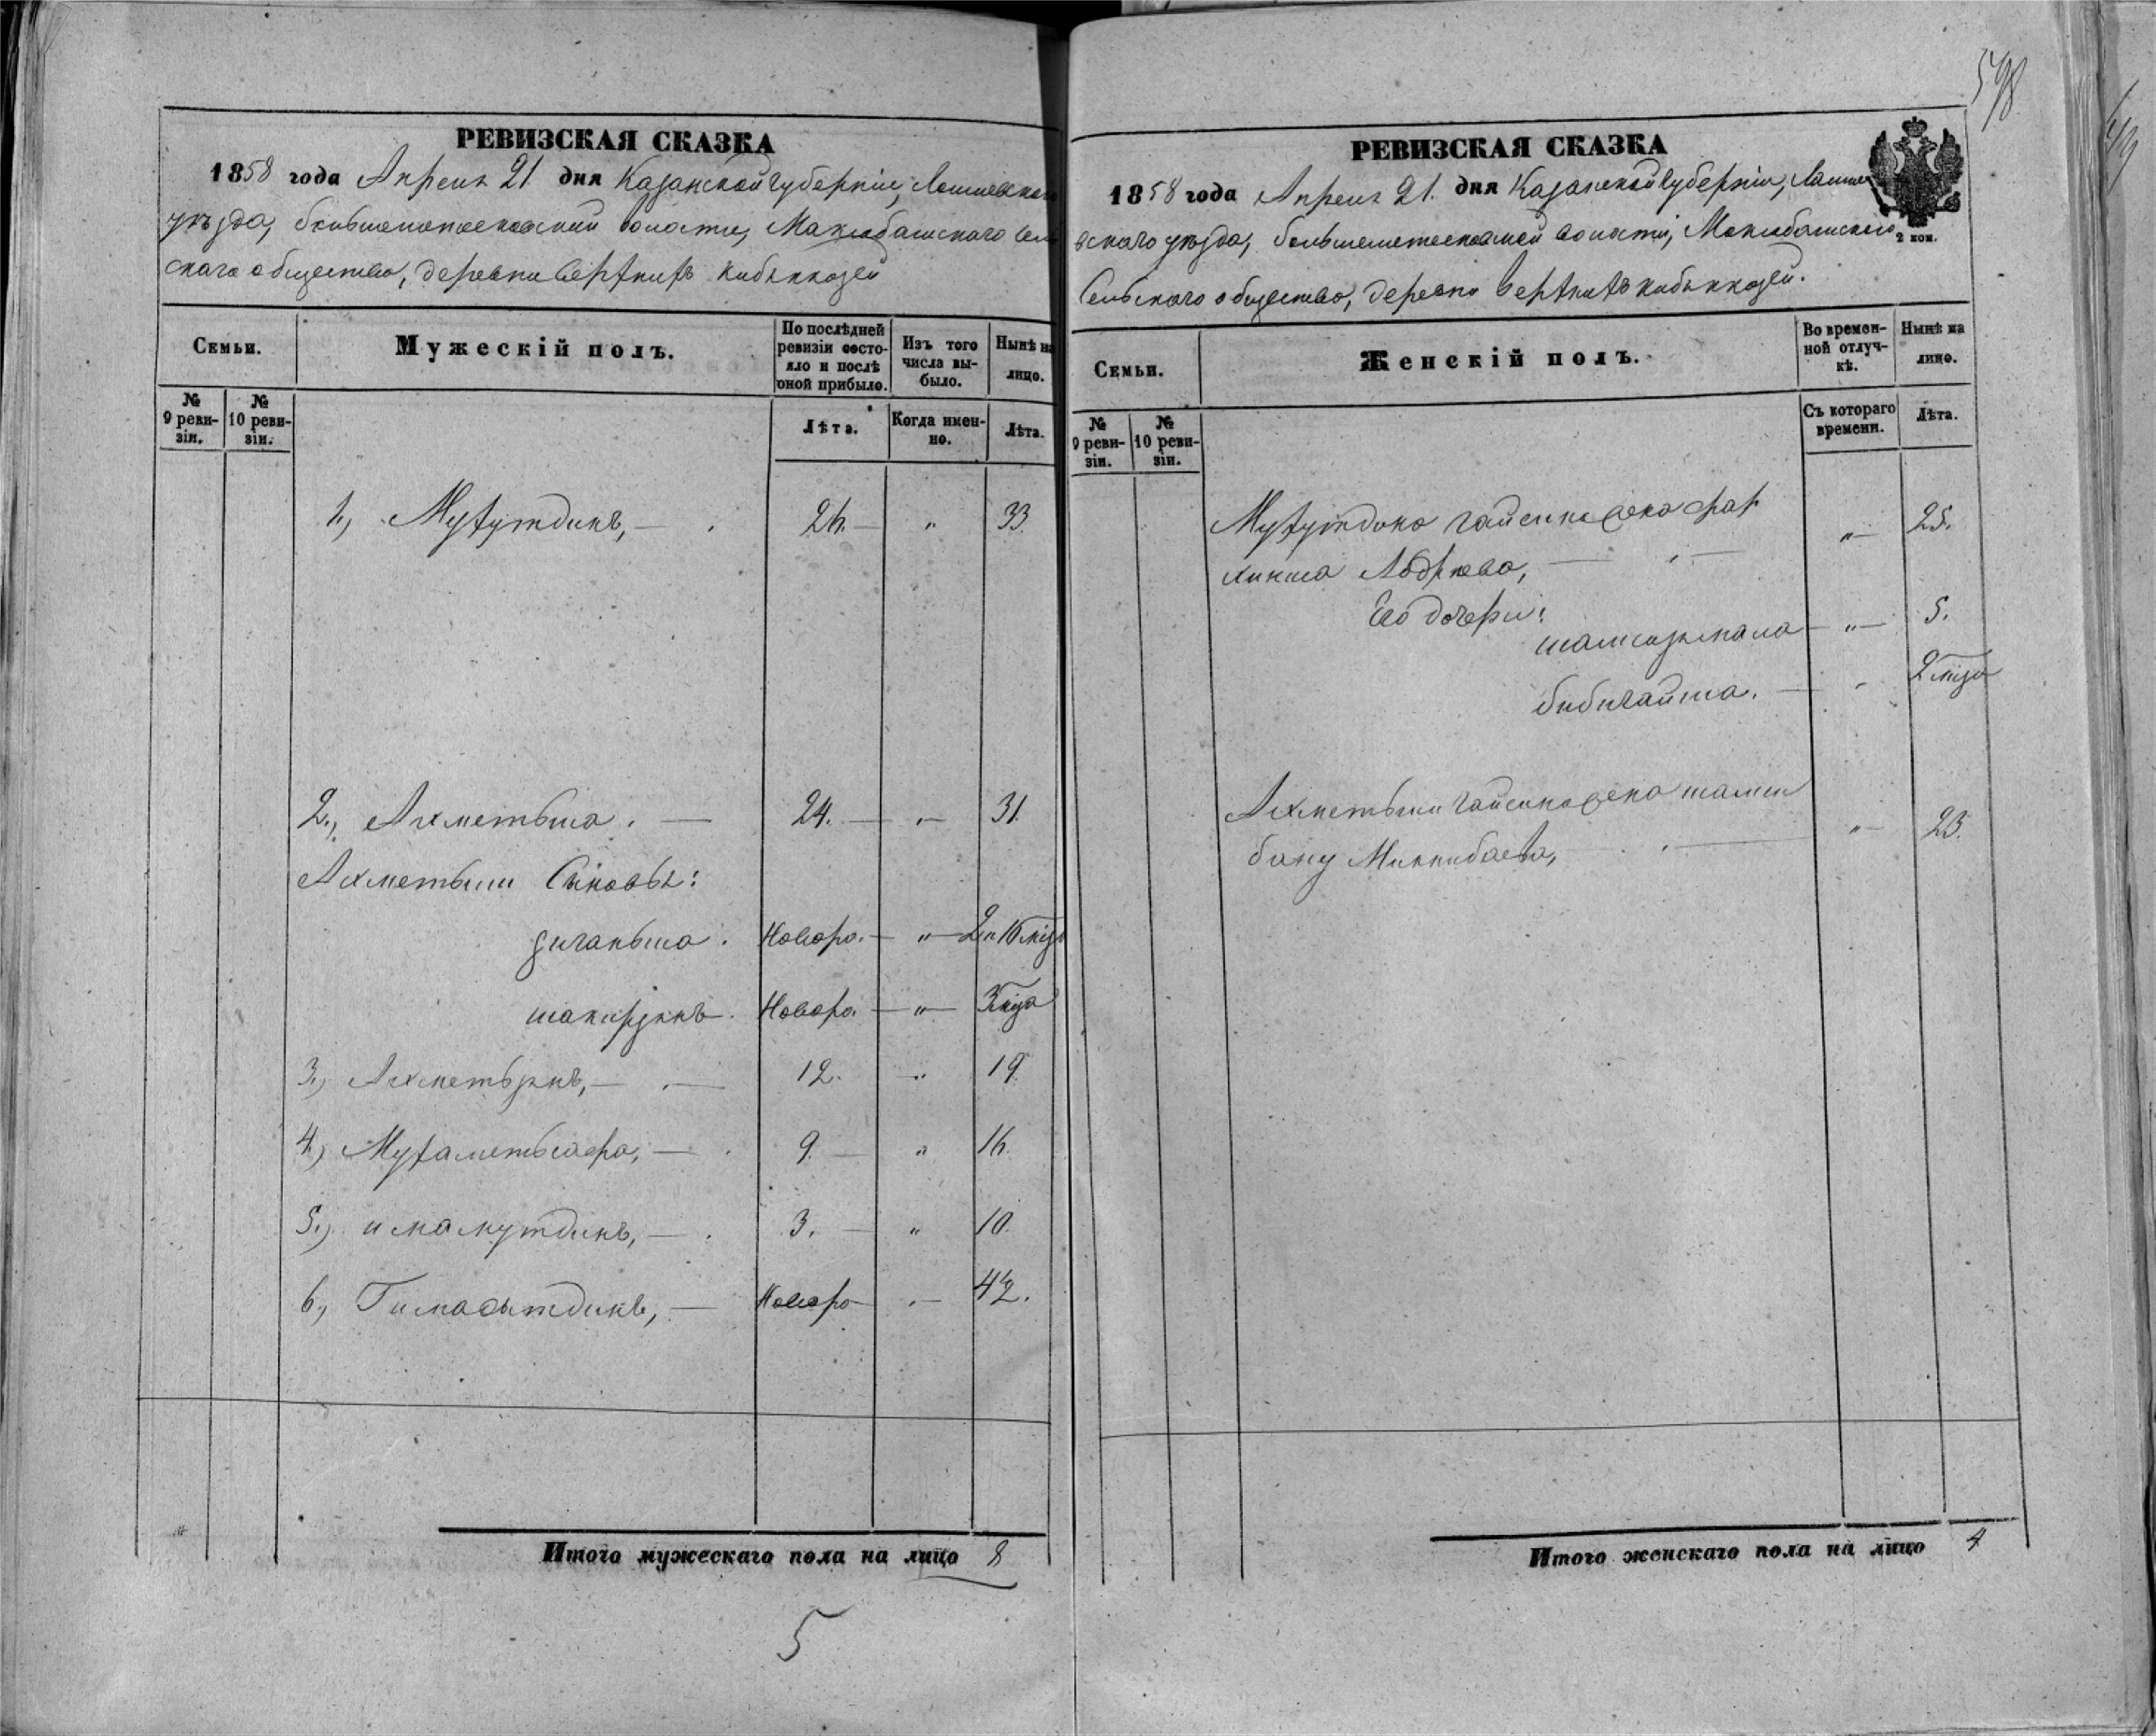 598
РЕВИЗСКАЯ СКАЗКА
1858 года Апреля 21 дня Казанской губернiи, Лаишевскаго
уѣзда, большеметескинской волости, Макзюбашскаго сель
скаго общества, деревни верхнихъ кибякказей
Семьи.
Мужескiй полъ.
По послѣдней ревизiи состояло и послѣ оной прибыло.
Изъ того числа выбыло.
Нынѣ на лицо.
№ 9 ревизiи.
№ 10 ревизiи.
Лѣта.
Когда именно.
Лѣта.
1., Мухутдинъ, — 26. — „ 33
2., Ахметьша. — 24. — „ — 31.
Ахметьши Сыновья:
зиганьша. Новоро. — „ —
шакирзянъ. Новоро. — „ — 3 мца
3., Ахметьзянъ, — 12. „ 19.
4., Мухаметьсафа, — 9. — „ 16.
5.,) имамутдинъ, — 3. — „ 10.
6., Гимадытдинъ, — Новоро — „ — 4½.
Итого мужескаго пола на лицо 8
5
РЕВИЗСКАЯ СКАЗКА
2 коп.
1858 года Апреля 21. дня Казанской губернiи, Лаише
вскаго уѣзда, большеметескинской волости, Макзюбашскаго
Сельскаго общества, деревни верхнихъ кибякказей.
Семьи.
Женскiй полъ.
Во временной отлучкѣ.
Нынѣ на лицо.
№ 9 ревизiи.
№ 10 ревизiи.
Съ котораго времени.
Лѣта.
Мухутдина гайсина жена фар
хинша Абдреева, — „ — 25.
Его дочери:
шамсизямала — „ — 5.
бибигайша. — „ 2 мца
Ахметьши гайсина жена шамси
бану Миннибаева, — „ — 23.
Итого женскаго пола на лицо 4